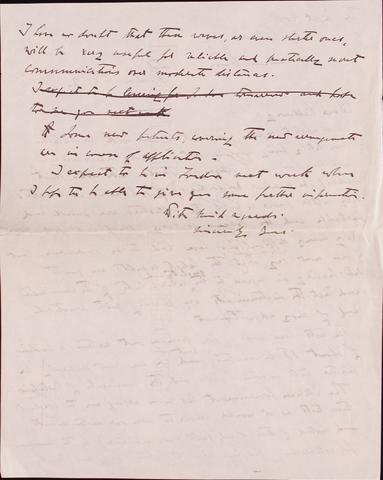 I have no doubt that these waves, or even shorter ones,
will be very useful for reliable and practically secret
communications over moderate distances.
I expect to be leaving for London tomorrow and hope
to see you next week
Some new patents covering the new arrangements
are in course of application.
I expect to be in London next week when
I hope to be able to give you some further information.
With kind regards.
Sincerely yours.